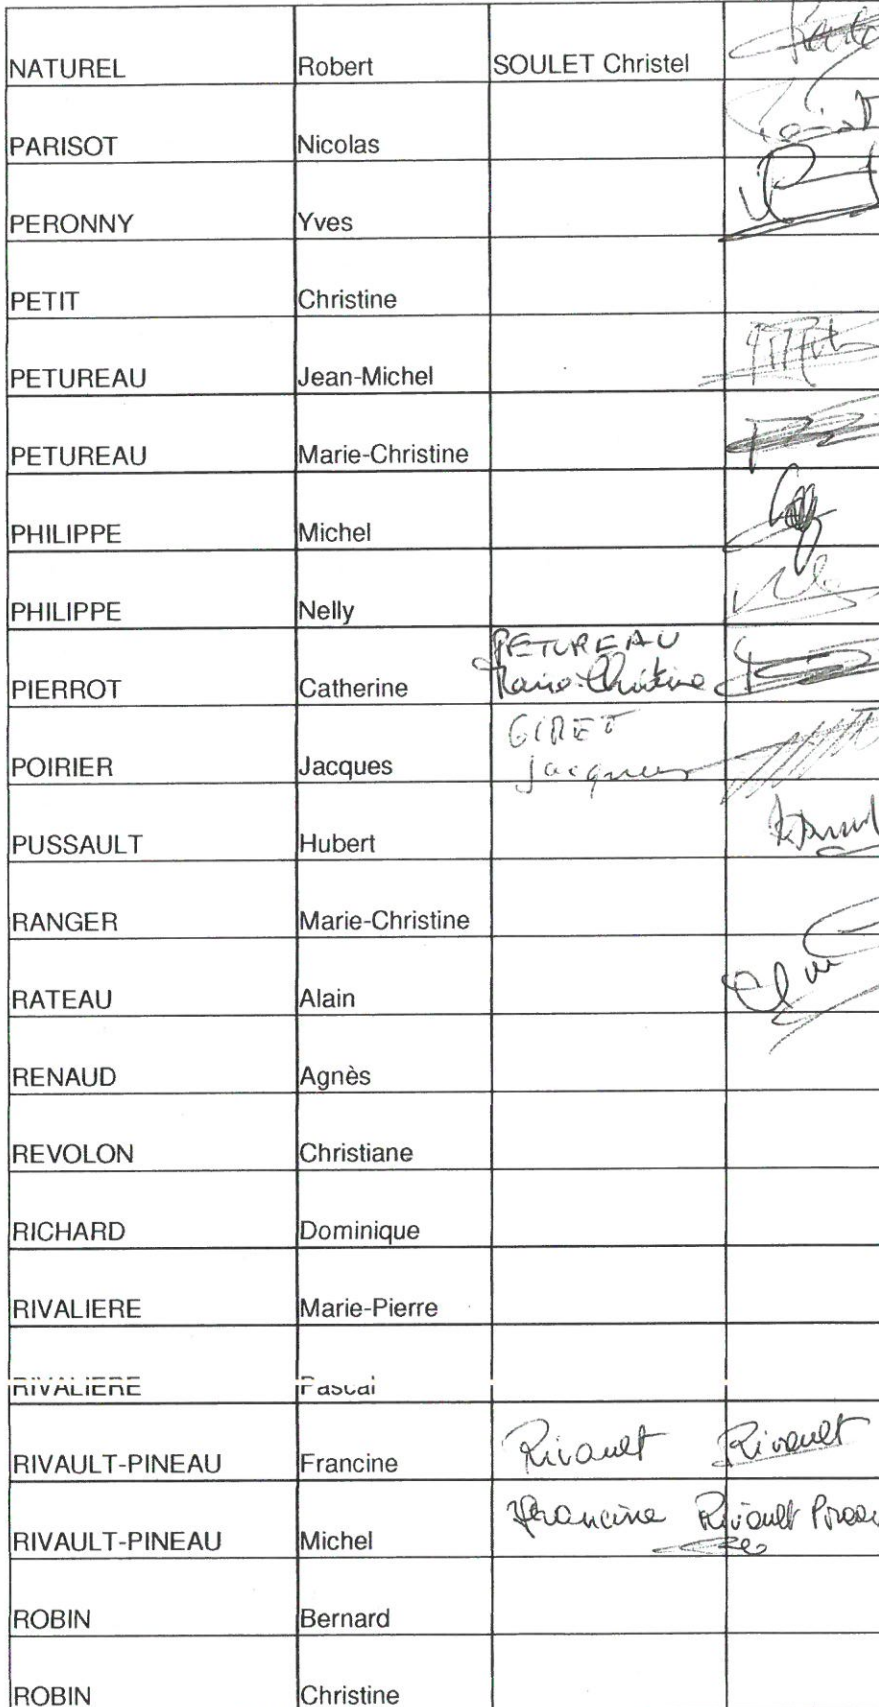 NATUREL Robert SOULET Christel
PARISOT Nicolas
PERONNY Yves
PETIT Christine
PETUREAU Jean-Michel
PETUREAU Marie-Christine
PHILIPPE Michel
PHILIPPE Nelly
PETUREAU
PIERROT Catherine Marie-Christine
GIRET
POIRIER Jacques Jacques
PUSSAULT Hubert
RANGER Marie-Christine
RATEAU Alain
RENAUD Agnès
REVOLON Christiane
RICHARD Dominique
RIVALIERE Marie-Pierre
RIVALIERE Pascal
RIVAULT-PINEAU Francine Rivault Rivault
RIVAULT-PINEAU Michel Francine Rivault Pineau
ROBIN Bernard
ROBIN Christine